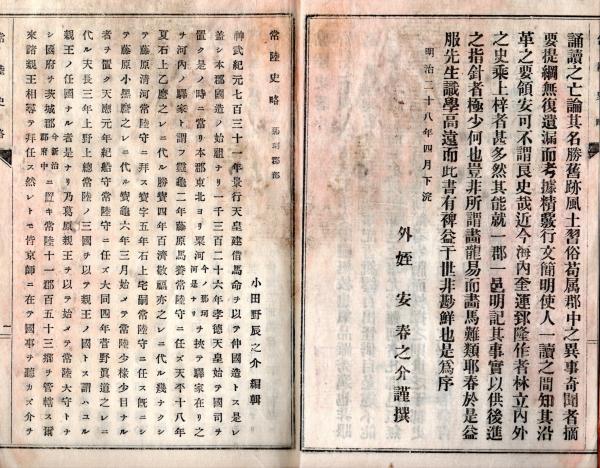 誦讀之亡論其名勝舊跡風土習俗苟属郡中之異事奇聞者摘
要提綱無復遺漏而考據精覈行文簡明使人一讀之間知其沿
革之要領安可不謂良史哉近今海內奎運郅隆作者林立內外
之史乘上梓者甚多然其能就一郡一邑明記其事實以供後進
之指針者極少何也豈非所謂畵龍易而畵馬難類耶春於是益
服先生識學高遠而此書有裨益于世非尠鮮也是爲序
明治二十八年四月下浣
外姪 安春之介謹撰
常陸史略 那珂郡部
小田野辰之介編輯
神武紀元七百三十一年景行天皇建借馬命ヲ以テ仲國造トス是レ
蓋シ本郡國造ノ始祖ナリ一千三百二十六年孝德天皇始テ國司ヲ
置ク是ノ時ニ當リ本郡東北ヨリ粟河今ノ那珂河是ナリヲ挾テ驛家在リ之
ヲ河內ノ驛家ト謂フ靈龜二年藤原馬養常陸守ニ任ス天平十八年
夏石上乙麿之レニ代ル勝寶四年百濟敬福亦之レニ代ル幾ナクシ
テ藤原清河常陸守ニ拜ス寶字五年石上宅嗣常陸守ニ任ス既ニシ
テ藤原小黑麿之レニ代ル寶龜六年三月始メテ常陸少椽少目ナル
者ヲ置ク天應元年紀船守常陸守ニ任ス大同四年菅野眞道之レニ
代ル天長三年上野上總常陸ノ三國ヲ以テ親王ノ國トス謂ハユル
親王ノ任國ナル者是ナリ乃葛原親王ヲ以テ始メテ常陸大守トナ
シ國府ヲ茨城郡今新治郡府中ニ置キ常陸十一郡百五十三鄉ヲ管轄ス爾
來諸親王相尋テ拜任ス然レトモ皆京師ニ在テ國事ヲ聽カス介ヲ
常陸史略
一